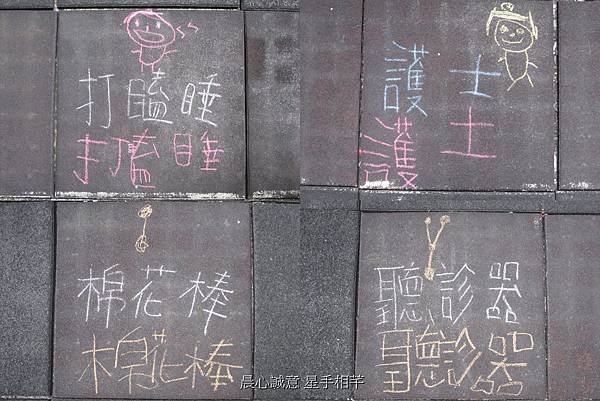 打瞌睡
打瞌睡
護士
護士
棉花棒
棉花棒
聽診器
聽診器
晨心誠意 星手相芊